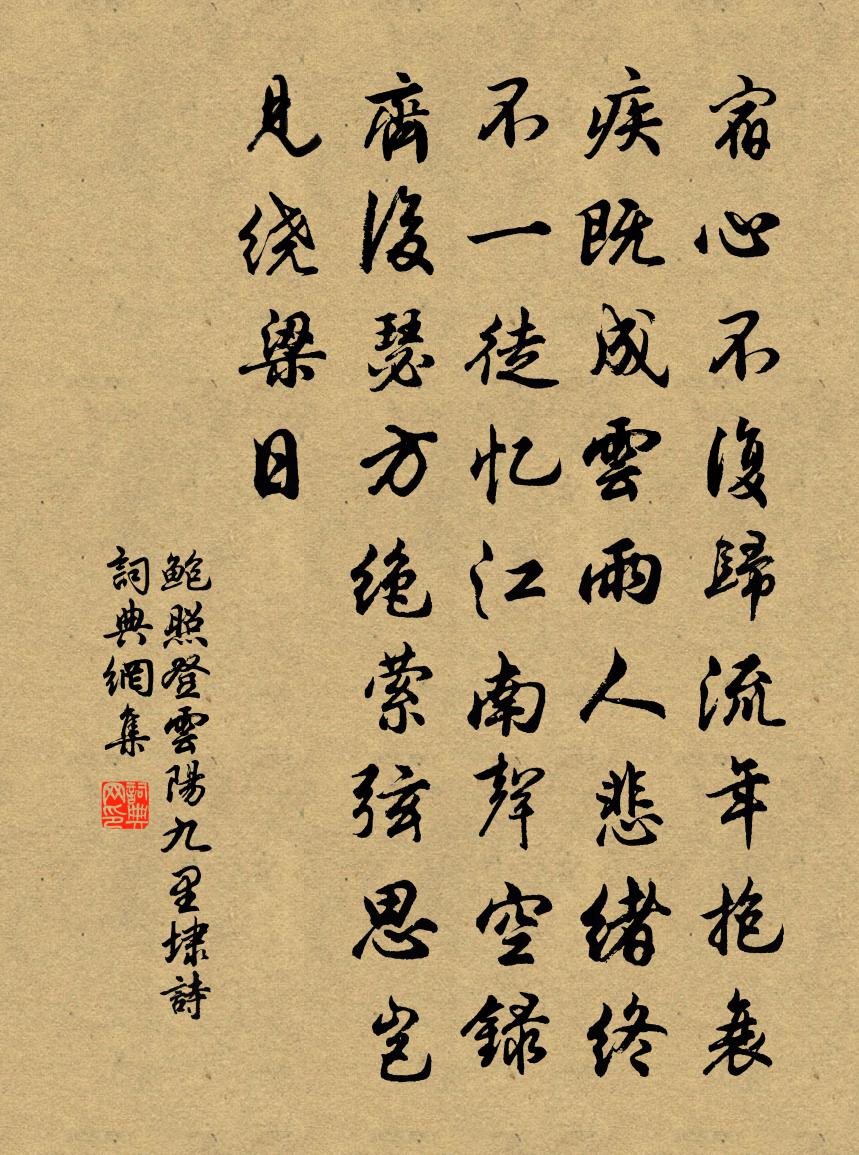 宿心不復歸流年抱衰
疾既成雲雨人悲緒終
不一徒忆江南聲空錄
齊後瑟方绝萦弦思岂
见绕梁日
鮑照登雲陽九里埭詩
詞典網集
詞典网印